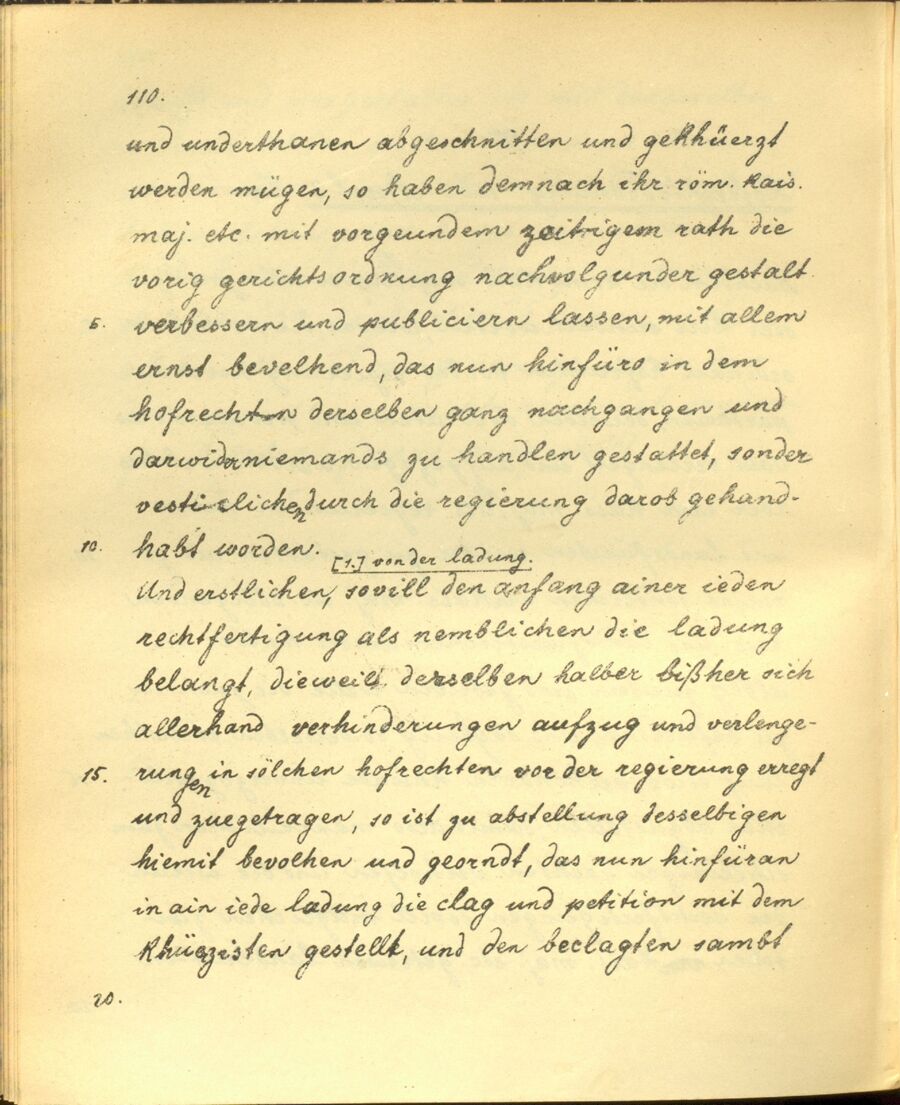 110.
und underthanen abgeschnitten und gekhüerzt
werden mügen, so haben demnach ihr röm. kais.
maj. etc. mit vorgeundem zeitrigem rath die
vorig gerichtsordnung nachvolgunder gestalt
5. verbessern und publiciern lassen, mit allem
ernst bevelhend, das nun hinfüro in dem
hofrechten derselben ganz nachgangen und
darwider niemands zu handlen gestattet, sonder
vesticlichen durch die regierung darob gehand-
10. habt worden.
[1.] von der ladung.
Und erstlichen, sovill den anfang ainer ieden
rechtfertigung als nemblichen die ladung
belangt, dieweil derselben halber bißher sich
allerhand verhinderungen aufzug und verlenge-
15. rungen in sölchen hofrechten vor der regierung erregt
und zuegetragen, so ist zu abstellung desselbigen
hiemit bevolhen und georndt, das nun hinfüran
in ain iede ladung die clag und petition mit dem
khürzisten gestellt, und den beclagten sambt
20.